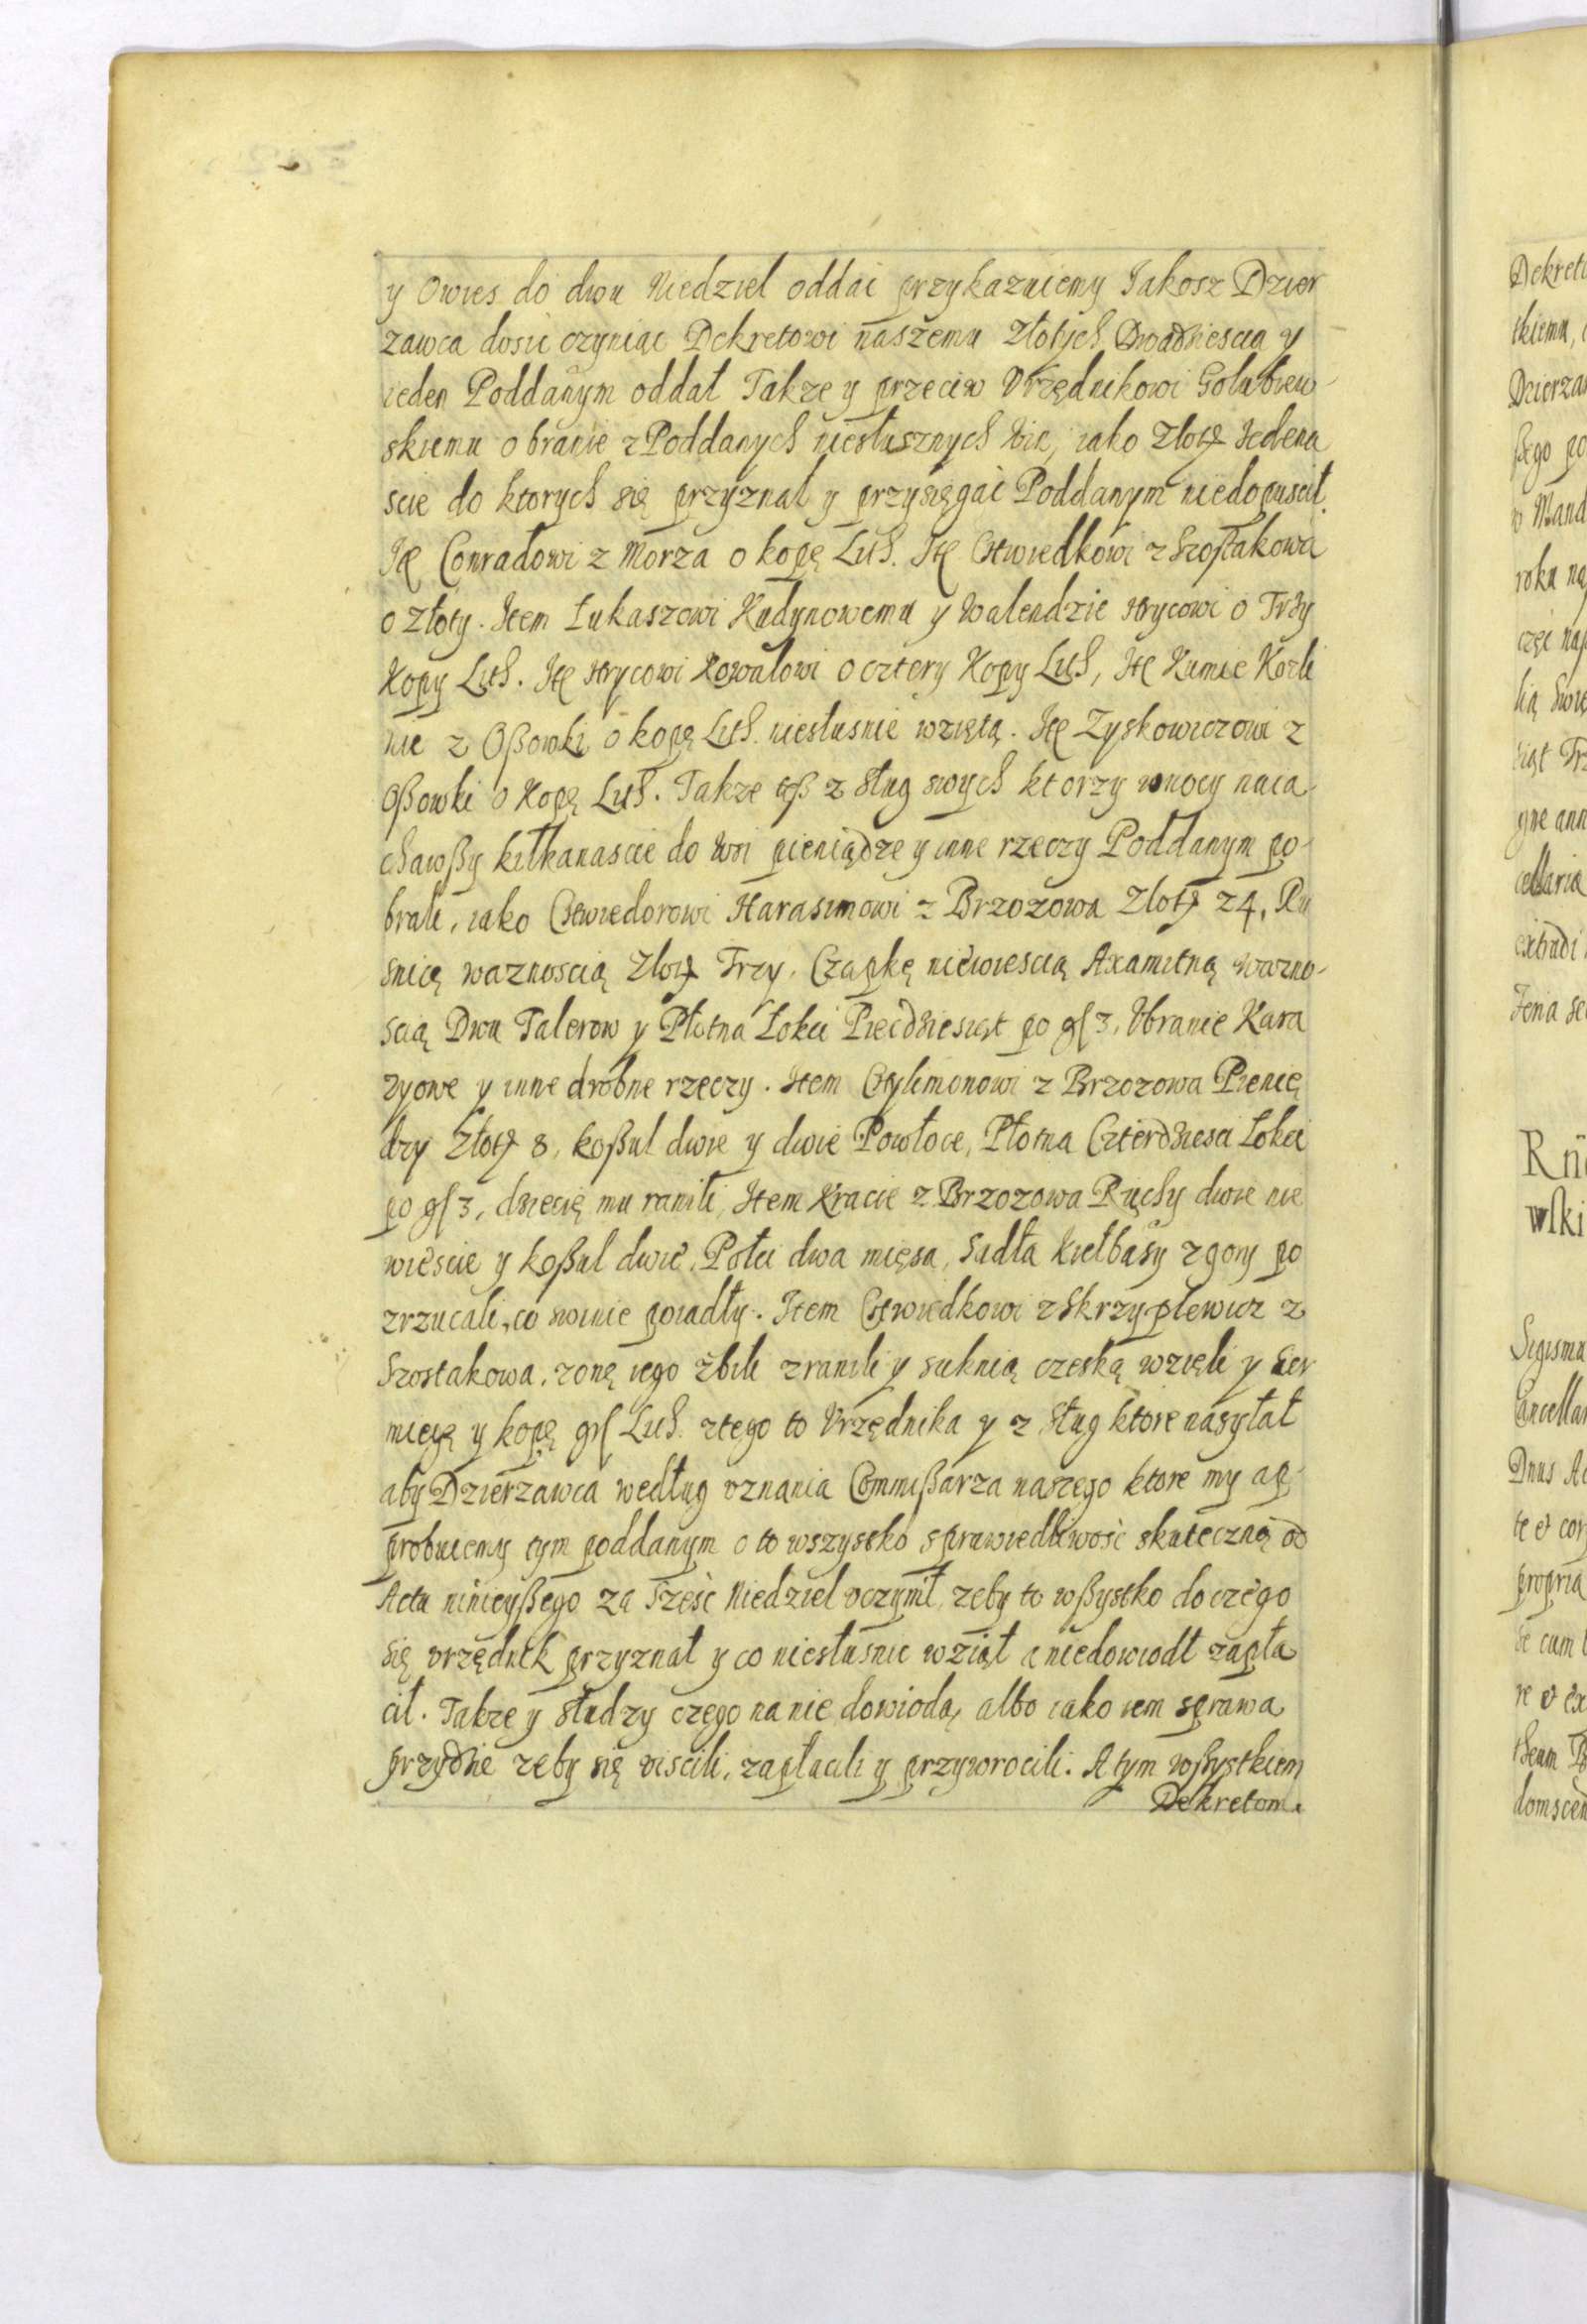 y Owies do dwu Niedziel oddać przykazuiemy Jakosz Dzier
zawca dosić czyniąc Dekretowi naszemu Złotych Dwadziescia y
ieden Poddanym oddał Takze y przeciw Vrzędnikowi Golubiew-
skiemu o branie z Poddanych niesłusznych Win, iako Złotỿ Iedena
scie do ktorych się przyznał y przysięgać Poddanym niedopuscił.
Itẽ Conradowi z Morza o kopę Lith. Itẽ Chwiedkowi z Szostakowa
o złoty. Item Łukaszowi Kudynowemu y Walendzie Hrycowi o Trzy
Kopy Lith. Itẽ Hrycowi Kowalowi o cztery Kopy Lith, Itẽ Kumie Kozli
nie z Oßowki o kopę Lith. niesłusnie wziętą. Itẽ Zyskowiczowi z
Oßowki o Kopę Lith. Takze teß z sług swych ktorzy w nocy naia-
chawßy kilkanascie do Wsi pieniądze y inne rzeczy Poddanym po-
brali, iako Chwiedorowi Harasimowi z Brzozowa Złotỿ 24, Ru
snicę waznoscią Złotỿ Trzy, Czapkę niewiescią Axamitną wazno-
scią Dwu Talerow y Płotna Łokci Piecdziesiąt po gſ 3, Vbranie Kara
zyowe y inne drobne rzeczy. Item Chylimonowi z Brzozowa Pienię
dzy Złotỿ 8, koßul dwie y dwie Powłoce, Płotna Czterdziesci Łokci
po gſ 3, dziecię mu ranili, Item Kracie z Brzozowa Ruchy dwie nie
wiescie y koßul dwie, Połci dwa mięsa, Sadła kiełbasy z gory po
zrzucali, co swinie poiadły. Item Chwiedkowi z Skrzyplewicz z
Szostakowa, zonę iego zbili zranili y suknią czeską wzięli y Sier
mięgę y kopę grſ Lith. z tego to Vrzędnika y z Sług ktore nasyłał
aby Dzierzawca według vznania Commißarza naszego ktore my ap-
probuiemy tym poddanym o to wszystko sprawiedliwość skuteczną od
Actu ninieyßego za Sześć Niedziel vczynił, zeby to wßystko do czego
się vrzędnik przyznał y co niesłusnie wziął a niedowiodł zapła
cił. Takze y słudzy czego na nie dowiodą, albo iako iem sprawa
przydzie zeby się viscili, zapłacili y przywrocili. A tym wßystkiem
Dekretom.